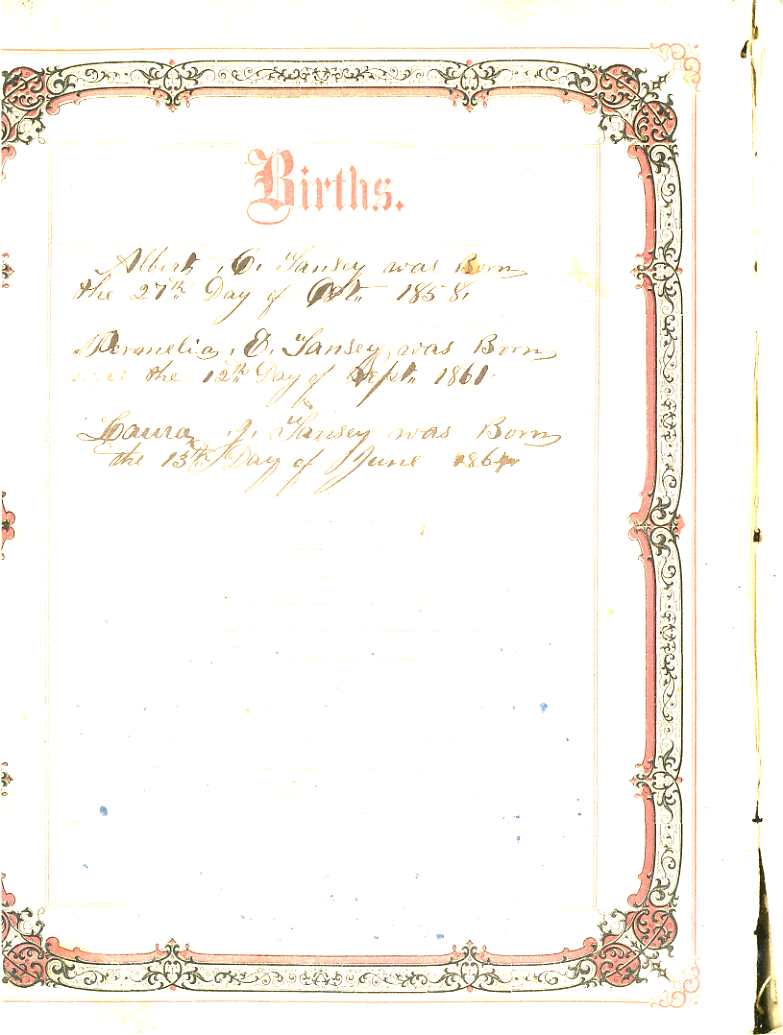 Births.
Albert . C. Tansey was Born
the 27th Day of Oct. 1858.
Permelia . E. Tansey, was Born
the 12th Day of Sept. 1861.
Laura J. Tansey was Born
the 13th Day of June 1864